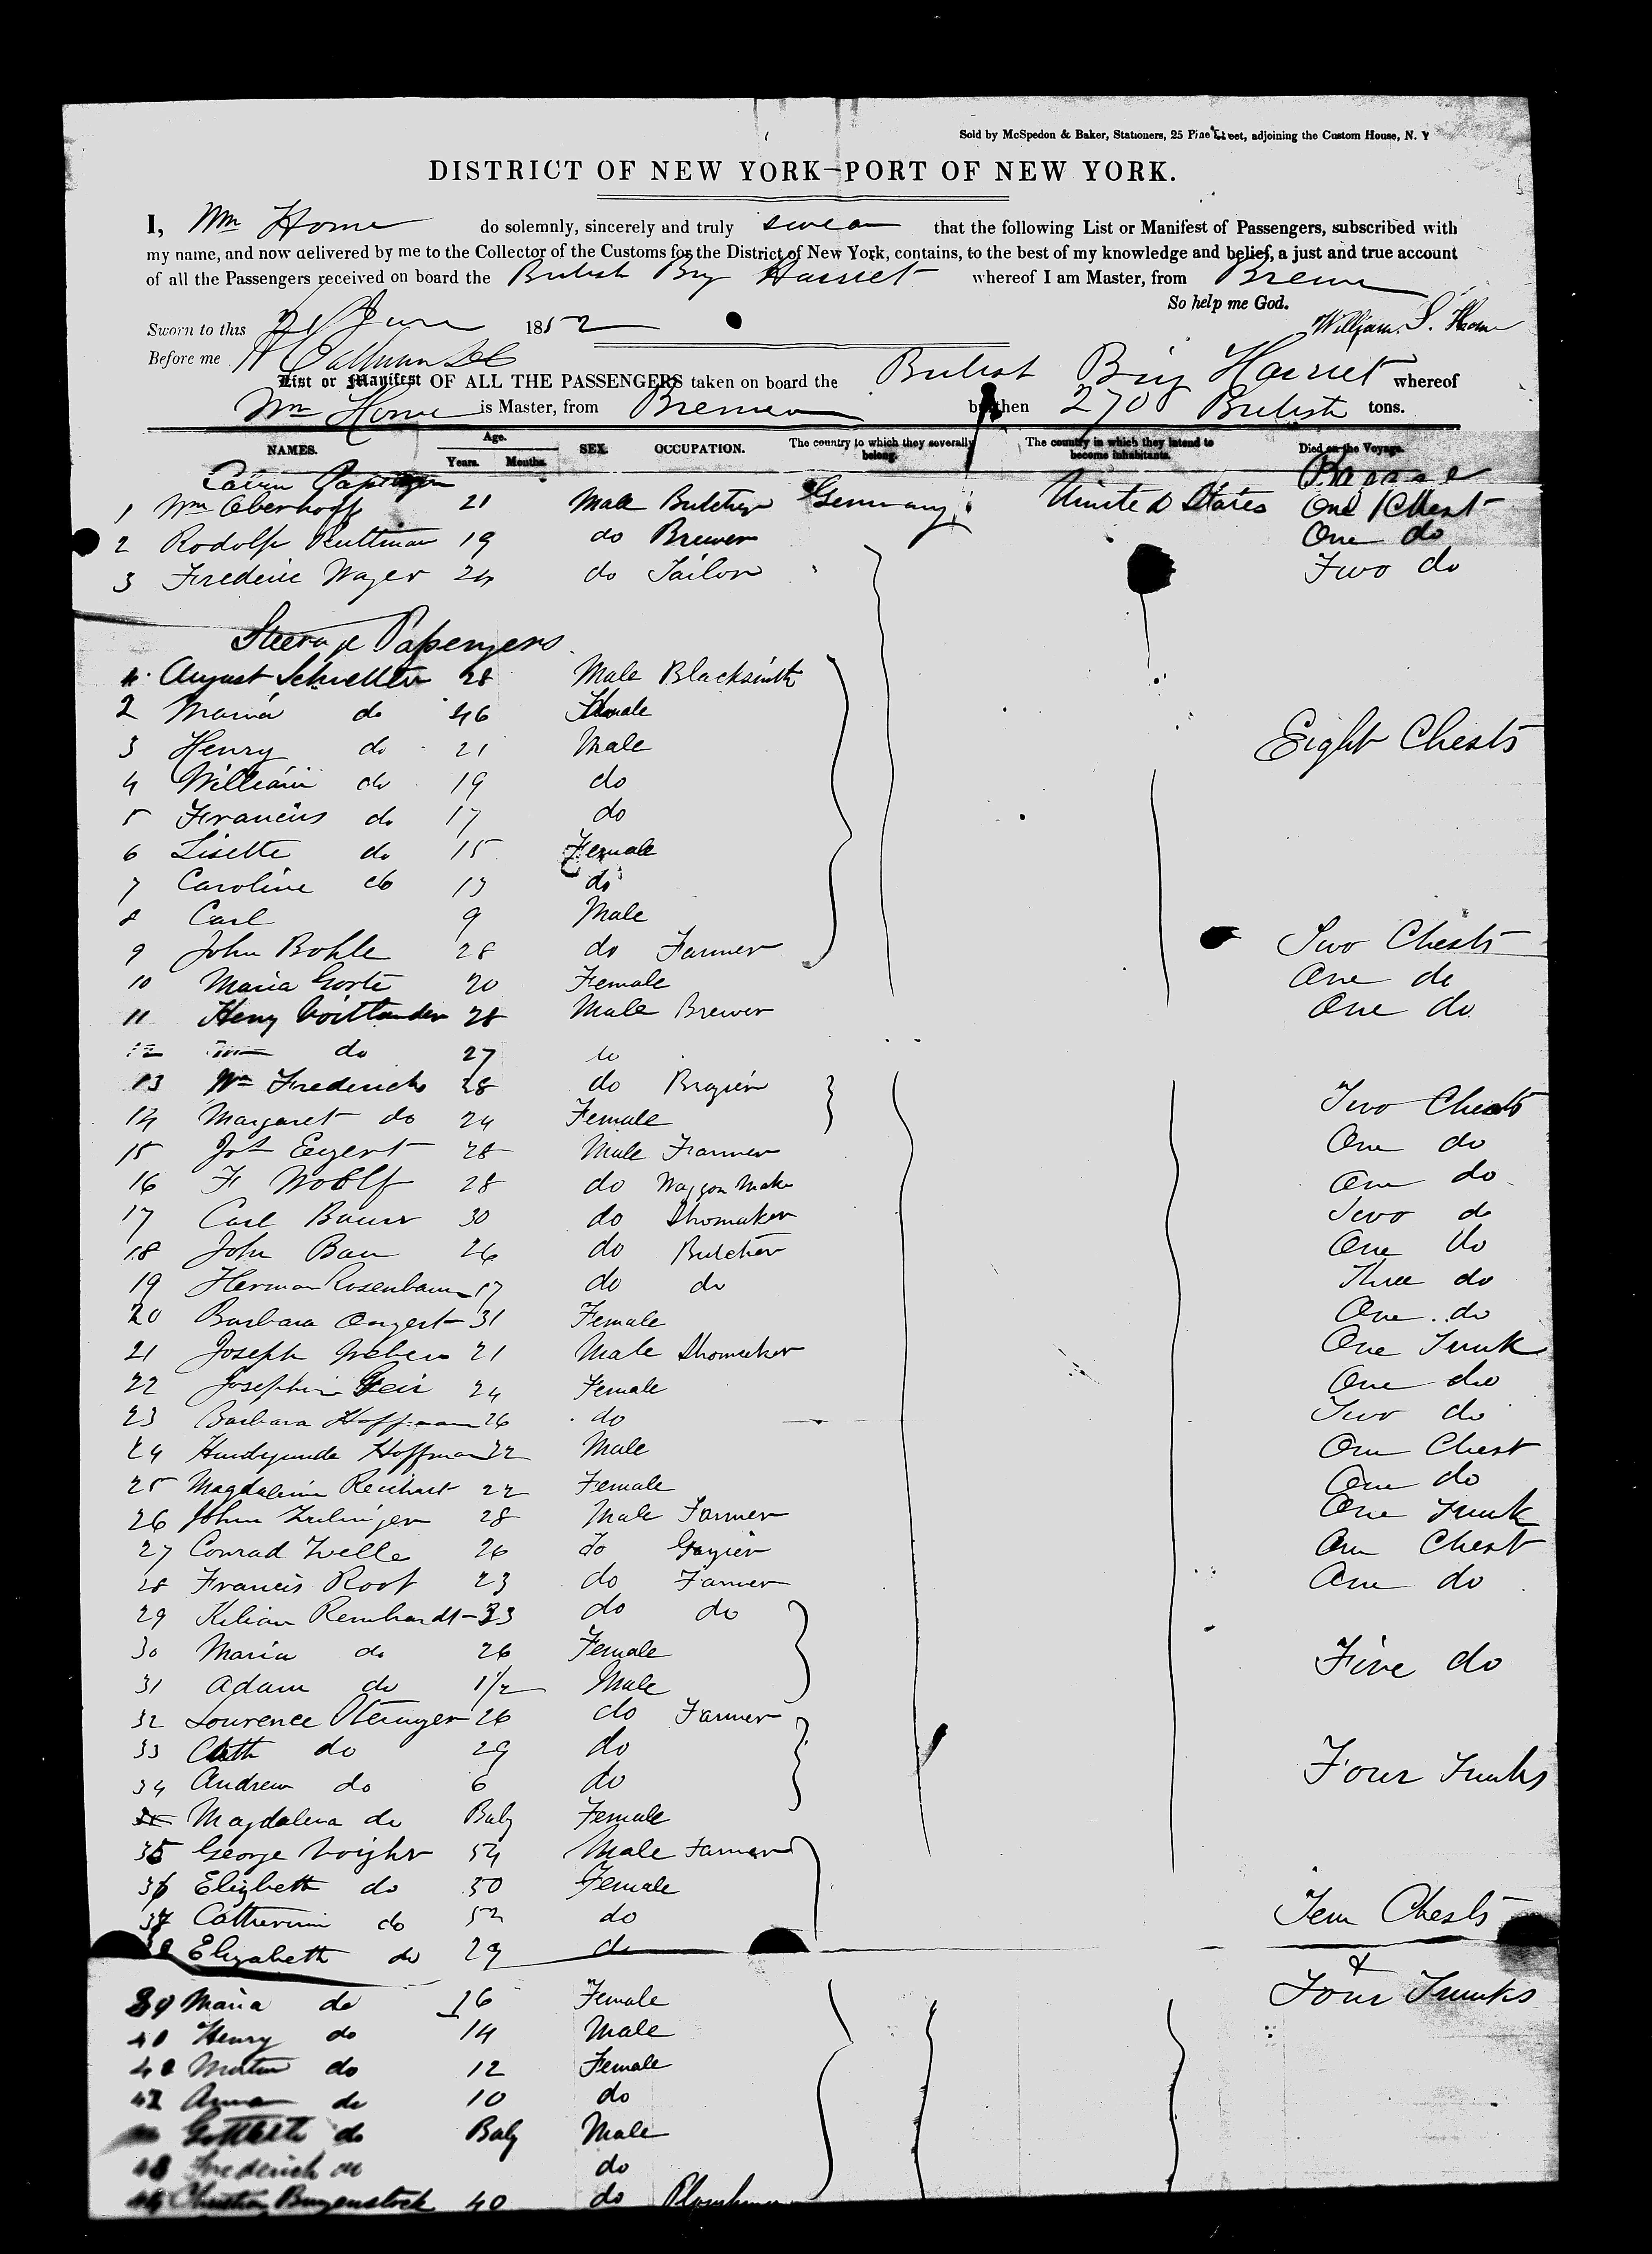 Sold by McSpedon & Baker, Stationers, 25 Pine Street, adjoining the Custom House, N. Y
DISTRICT OF NEW YORK—PORT OF NEW YORK.
I, Wm Home do solemnly, sincerely and truly swear that the following List or Manifest of Passengers, subscribed with
my name, and now delivered by me to the Collector of the Customs for the District of New York, contains, to the best of my knowledge and belief, a just and true account
of all the Passengers received on board the British Brig Harriet whereof I am Master, from Bremen
So help me God.
Sworn to this 21 June 1852 William S. Home
Before me
List or Manifest OF ALL THE PASSENGERS taken on board the British Brig Harriet whereof
Wm Home is Master, from Bremen burthen 270 British tons.
NAMES. Age. Years. Months. SEX. OCCUPATION. The country to which they severally belong. The country in which they intend to become inhabitants. Died on the Voyage.
Cabin Passengers Baggage
1 Wm Oberhoff 21 Male Butcher Germany United States One Chest
2 Rodolf Puttman 19 do Brewer One do
3 Frederic Wager 24 do Tailor Two do
Steerage Passengers
August 28 Male Blacksmith
2 Maria do 46 Female
3 Henry do 21 Male Eight Chests
4 William do 19 do
5 Francis do 17 do
6 Lisette do 15 Female
7 Caroline do 13 do
8 Carl 9 Male
9 John Bohle 28 do Farmer Two Chests
10 Maria Gorte 20 Female One do
11 Heny Voittander 28 Male Brewer One do
12 do 27 do
13 Wm Frederichs 28 do Brazier Two Chests
14 Margaret do 24 Female
15 Jos Eegert 28 Male Farmer One do
16 F Woolf 28 do Waggon Make One do
17 Carl Bauer 30 do Shomaker Two do
18 John Bau 26 do Butcher One do
19 Herman Rosenbaum 17 do do Three do
20 Barbara Ongert 31 Female One do
21 Joseph Weber 21 Male Shomaker One Trunk
22 Josephin Geir 24 Female One do
23 Barbara Hoffman 26 do Two do
24 Hoffman 22 Male One Chest
25 Magdalena Reichart 22 Female One do
26 John 28 Male Farmer One Trunk
27 Conrad Zvelle 26 do One Chest
28 Francis Root 23 do Farmer One do
29 Kilian Reinhardt 33 do do
30 Maria do 26 Female Five do
31 Adam do 1 1/2 Male
32 Lourence 26 do Farmer
33 Cath do 29 do
34 Andrew do 6 do Four Trunks
Magdalena do Baby Female
35 George Voight 54 Male Farmer
36 Elizbeth do 50 Female
37 Catherine do 52 do Ten Chests
38 Elizabeth do 29 do &
39 Maria do 16 Female Four Trunks
40 Henry do 14 Male
Martin do 12 Female
42 Anna do 10 do
do Baby Male
Frederick do do
Christian 40 do